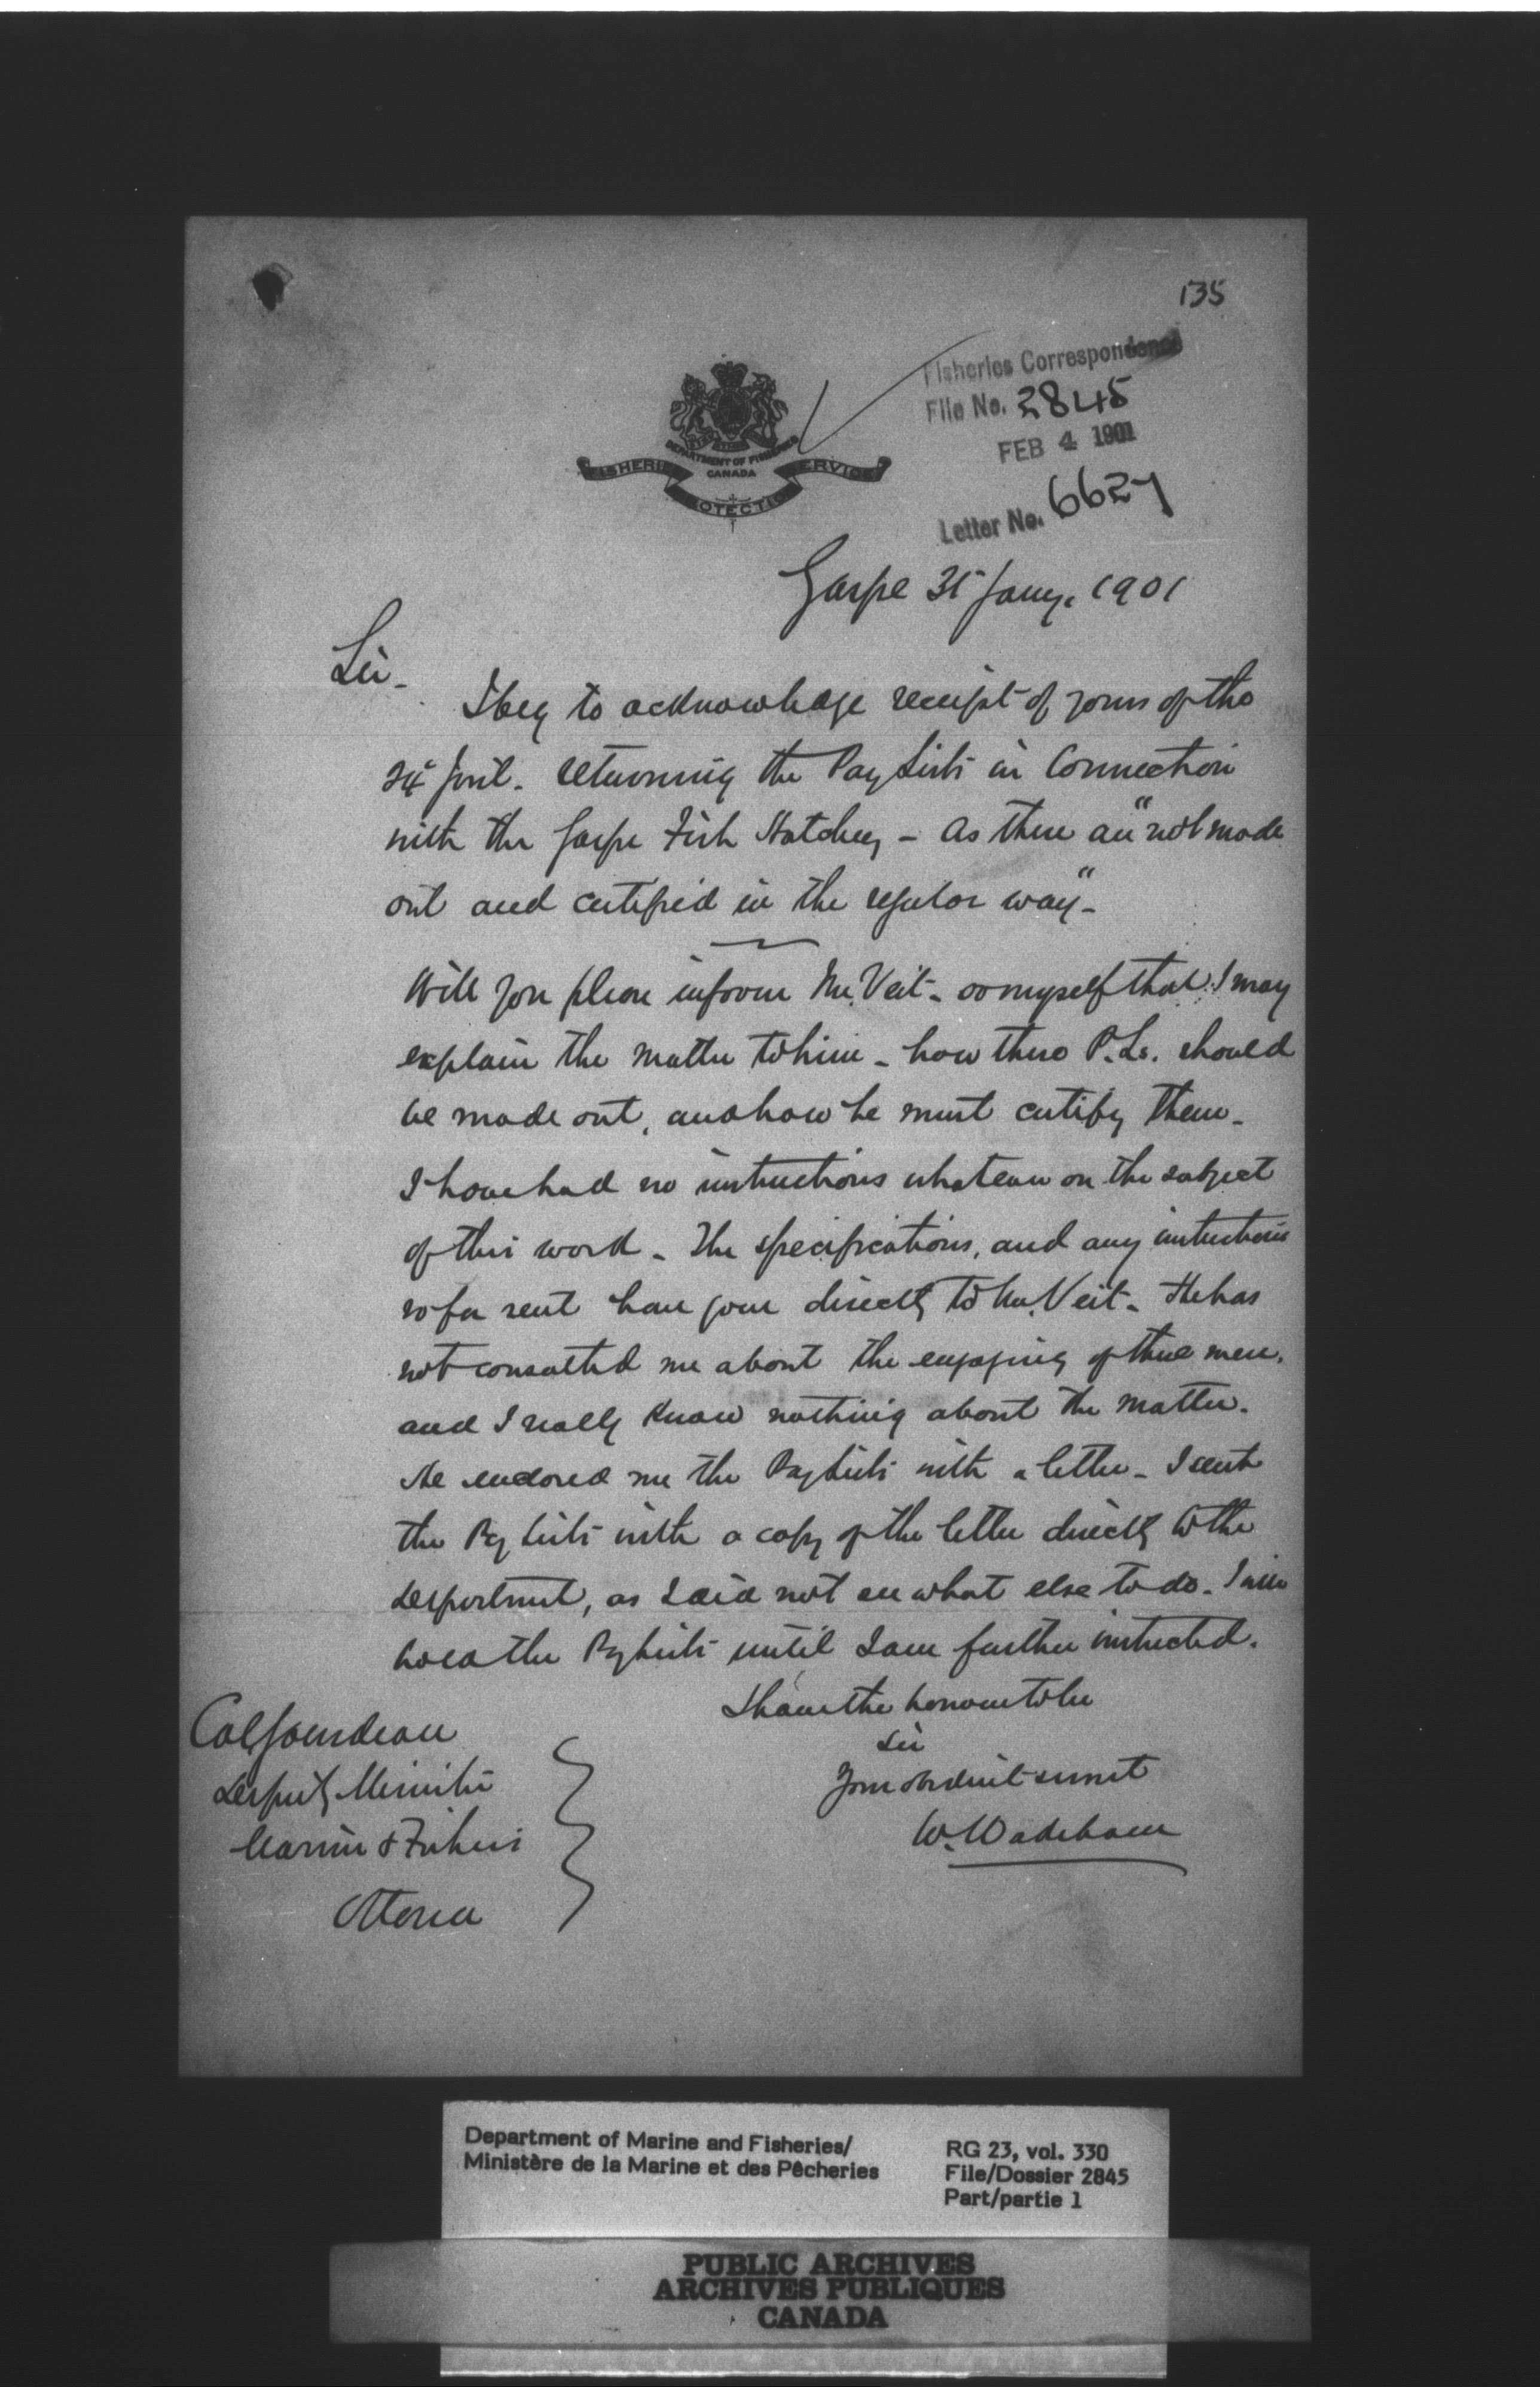 135
Fisheries Correspondence
File No. 2845
FEB 4 1901
Letter No. 6627
DEPARTMENT OF FISHERIES
CANADA
FISHERIES PROTECTION SERVICE
Gaspe 31 Jany. 1901
Sir-
I beg to acknowledge receipt of yours of the
24 returning the Pay Lists in Connection
with the Gaspe Fish Hatchery - as these are "not made
out and certified in the regular way"-
Will you please inform Mr. Veit - or myself that I may
explain the matter to him - how these P. Ls. should
be made out, and how he must certify them -
I have had no instructions whatever on the subject
of this work - The specifications, and any instructions
so far sent have gone directly to Mr. Veit - He has
not consulted me about the engaging of these men,
and I really know nothing about the matter.
He enclosed me the Pay Lists with a letter - I sent
the Pay Lists with a copy of the letter directly to the
Department, as I did not see what else to do - I will
hold the Pay Lists until I am further instructed.
I have the honour to be
Sir
Your obedient servant
W. Wakeham
Col Gourdeau
Deputy Minister
Marine & Fisheries
Ottawa
Department of Marine and Fisheries/
Ministère de la Marine et des Pêcheries
RG 23, vol. 330
File/Dossier 2845
Part/partie 1
PUBLIC ARCHIVES
ARCHIVES PUBLIQUES
CANADA